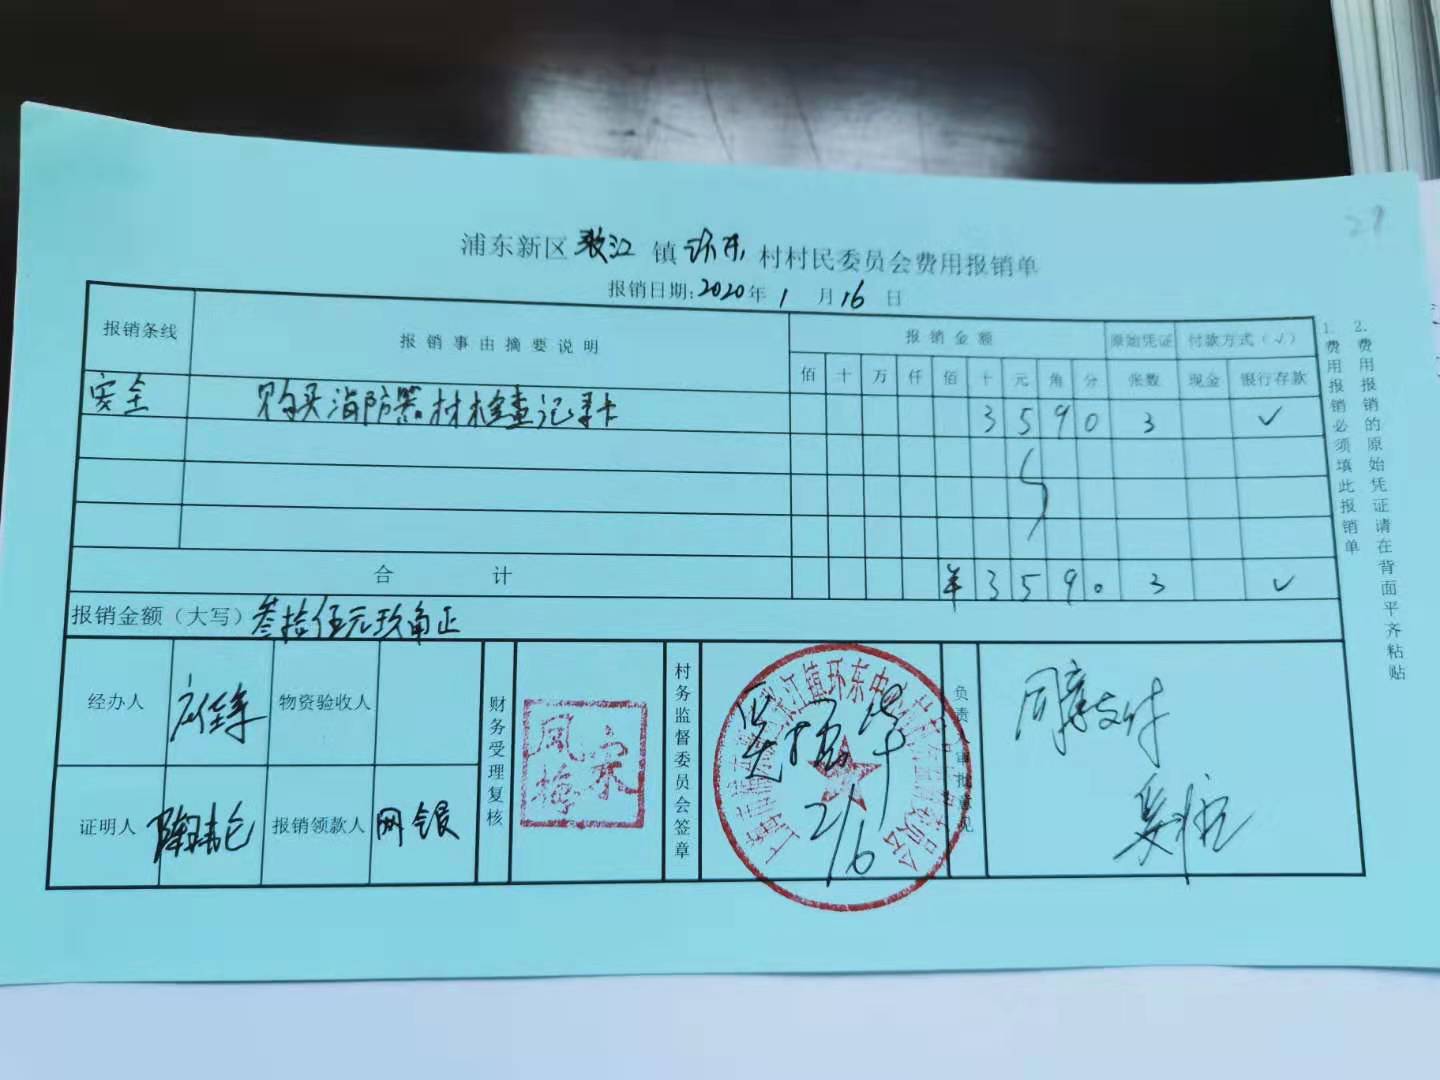 27
浦东新区张江镇环东村村民委员会费用报销单
报销日期:2020年1月16日
报销条线 报销事由摘要说明 报销金额 原始凭证 付款方式(√)
佰 十 万 仟 佰 十 元 角 分 张数 现金 银行存款
安全 购买消防器材检查记录卡 3 5 9 0 3 √
合计 ¥ 3 5 9 0 3 √
报销金额(大写)叁拾伍元玖角正
经办人 物资验收人
证明人 陶 报销领款人 网银
财务受理复核
凤梅 宗
村务监督委员会签章
吴振华
2/6
镇环东中 村 委员会
负责人审批意见
同意支付
吴
1.费用报销必须填此报销单
2.费用报销的原始凭证请在背面平齐粘贴